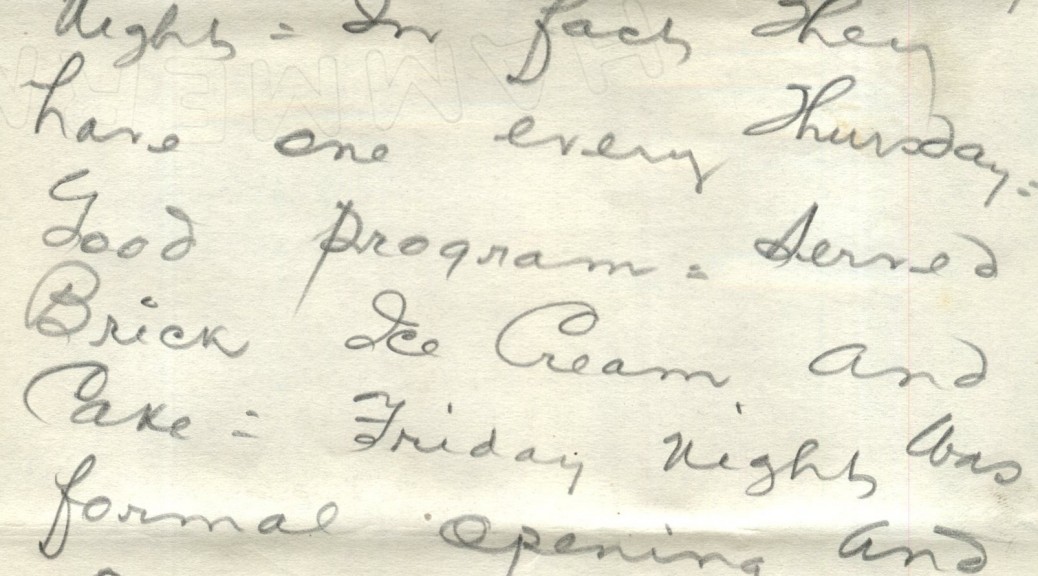 Night = In fact they
have one every Thursday =
Good program = Served
Brick Ice Cream and
Cake = Friday night was
formal opening and